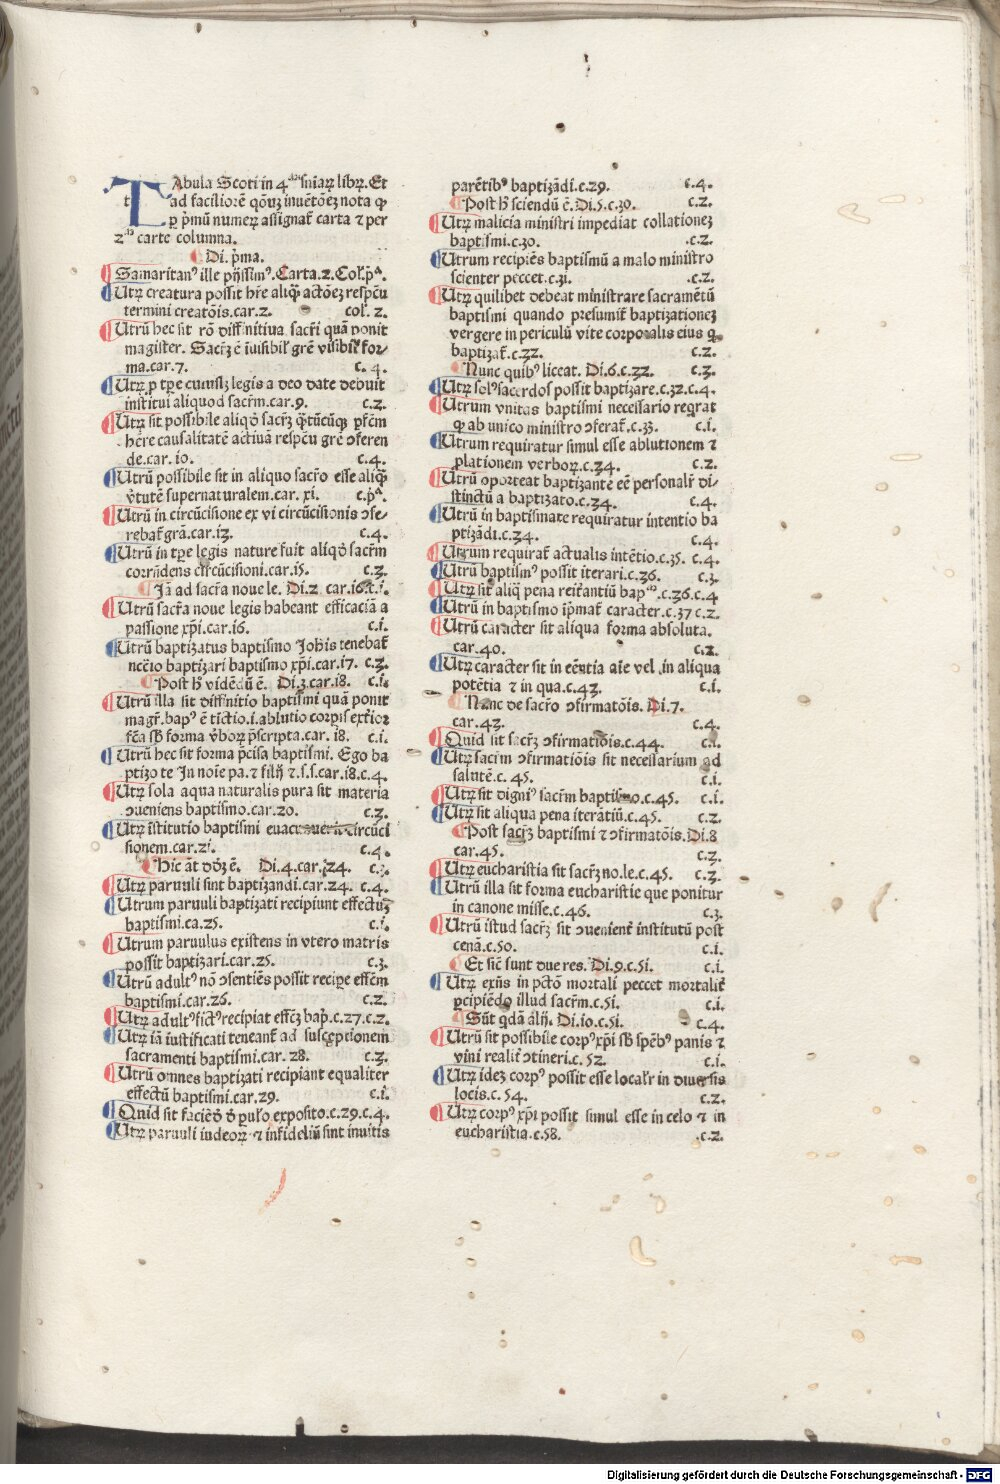 TAbula Scoti in 4ᵗᵘᵐ sniaꝝ libꝝ. Et
ad faciliorē qōnꝫ inuētōeꝫ nota ꝙ
ꝑ pͥmū numeꝝ assignat͛ carta ⁊ per
2ᵘᵐ carte columna.
Di. pͥma.
Samaritanꝰ ille pijssimꝰ. Carta.2. Col.pᵃ.
Utꝝ creatura possit hr̄e aliqᷓ actōeꝫ respcū
termini creatōis.car.2. col. 2.
Utrū hec sit rō diffinitiua sacr̄i quā ponit
magister. Sacrꝫ ē īuisibil̓ grē visibil̓ for⸗
ma.car.7. c. 4.
Utꝝ ꝑ tꝑe cuiuslꝫ legis a deo date debuit
institui aliquod sacr̄m.car.9. c.2.
Utꝝ sit possibile aliqḋ sacrꝫ qᷓtūcūqꝫ ꝑfc̄m
hēre causalitatē actiuā respcū grē ↄferen
de.car.10. c.4.
Utrū possibile sit in aliquo sacr̄o esse aliqᷓ
ṽtutē supernaturalem.car. xi. c.pᵃ.
Utrū in circūcisione ex vi circūcisionis ↄfe⸗
rebat͛ gr̄a.car.13. c.4.
Utrū in tꝑe legis nature fuit aliqḋ sacr̄m
corrn̄dens circūcisioni.car.15. c.3.
Jā ad sacr̄a noue le. Di.2 car.16.c.i.
Utrū sacr̄a noue legis habeant efficaciā a
passione xp̄i.car.16. c.i.
Utrū baptizatus baptismo Joh̄is tenebat͛
ncc̄io baptizari baptismo xp̄i.car.17. c.3.
Post h̄ vidēdū ē. Di.3.car.18. c.i.
Utrū illa sit diffinitio baptismi quā ponit
magr̄. bapꝰ ē tīctio.i.ablutio corꝑis exteͥoꝛ
fc̄a sb̄ forma v̓boꝝ p̄scripta.car. 18. c.i.
Utrū hec sit forma p̄cisa baptismi. Ego ba
ptizo te Jn noīe pa.⁊ filij ⁊.s.s.car.18.c.4.
Utꝝ sola aqua naturalis pura sit materia
ↄueniens baptismo.car.20. c.3.
Utꝝ īstitutio baptismi euacuauerit circūci
sionem.car.21. c.4.
Hic āt dōꝫ ē. Di.4.car.24. c.3.
Utꝝ paruuli sint baptizandi.car.24. c.4.
Utrum paruuli baptizati recipiunt effectuꝫ
baptismi.ca.25. c.i.
Utrum paruulus existens in vtero matris
possit baptizari.car.25. c.3.
Utrū adultꝰ nō ↄsentiēs possit recipe effc̄m
baptismi.car.26. c.2.
Utꝝ adultꝰ fictꝰ recipiat effc̄ꝫ bap̄.c.27.c.2.
Utꝝ iā iustificati teneant͛ ad susceptionem
sacramenti baptismi.car.28. c.3.
Utrū omnes baptizati recipiant equaliter
effectū baptismi.car.29. c.i.
Quid sit faciēḋ ḋ pul̓o exposito.c.29.c.4.
Utꝝ paruuli iudeoꝝ ⁊ infideliū sint inuitis
parētibꝰ baptizādi.c.29. c.4.
Post h̄ sciendū ē. Di.5.c.30. c.2.
Utꝝ malicia ministri impediat collationeꝫ
baptismi.c.30. c.2.
Utrum recipiēs baptismū a malo ministro
scienter peccet.c.31. c.2.
Utꝝ quilibet debeat ministrare sacramētū
baptismi quando presumit͛ baptizationeꝫ
vergere in periculū vite corporalis eius q̄
baptizat͛.c.32. c.2.
Nunc quibꝰ liceat. Di.6.c.32. c.3.
Utꝝ solꝰ sacerdos possit baptizare.c.32.c.4.
Utrum vnitas baptismi necessario reqͥrat
ꝙ ab unico ministro ↄferat͛.c.33. c.i.
Utrum requiratur simul esse ablutionem ⁊
ꝓlationem verboꝝ.c.34. c.2.
Utrū oporteat baptizante eē personalr̄ di⸗
stinctū a baptizato.c.34. c.4.
Utrū in baptismate requiratur intentio ba
ptizādi.c.34. c.4.
Utrum requirat͛ actualis intētio.c.35. c.4.
Utrū baptismꝰ possit iterari.c.36. c.3.
Utꝝ sit aliqᷓ pena reit͛antiū bapᵐᵒ.c.36.c.4
Utrū in baptismo ip̄mat͛ caracter.c.37 c.2.
Utrū caracter sit aliqua forma absoluta.
car.40. c.2.
Utꝝ caracter sit in eēntia aīe vel in aliqua
potētia ⁊ in qua.c.43. c.i.
Nunc de sacr̄o ↄfirmatōis. Di.7.
car.43. c.4.
Quid sit sacrꝫ ↄfirmatiōis.c.44. c.i.
Utꝝ sacr̄m ↄfirmatiōis sit necessarium ad
salutē.c. 45. c.i.
Utꝝ sit digniꝰ sacr̄m baptismo.c.45. c.i.
Utꝝ sit aliqua pena iteratiū.c.45. c.2.
Post sacrꝫ baptismi ⁊ ↄfirmatōis. Di.8
car.45. c.2.
Utꝝ eucharistia sit sacrꝫ no.le.c.45. c.3.
Utrū illa sit forma eucharistie que ponitur
in canone misse.c.46. c.3.
Utrū istud sacrꝫ sit ↄuenient͛ institutū post
cenā.c.50. c.i.
Et sic̄ sunt due res. Di.9.c.51. c.i.
Utꝝ exn̄s in pctō mortali peccet mortalit͛
ꝑcipiēdo illud sacr̄m.c.51. c.i.
Sūt qdā alij. Di.10.c.51. c.4.
Utrū sit possibile corpꝰ xp̄i sb̄ spēbꝰ panis ⁊
vini realit͛ ↄtineri.c. 52. c.i.
Utꝝ ideꝫ corpꝰ possit esse localr̄ in diuersis
locis.c. 54. c.2.
Utꝝ corpꝰ xp̄i possit simul esse in celo ⁊ in
eucharistia.c.58. c.2.
Digitalisierung gefördert durch die Deutsche Forschungsgemeinschaft - DFG